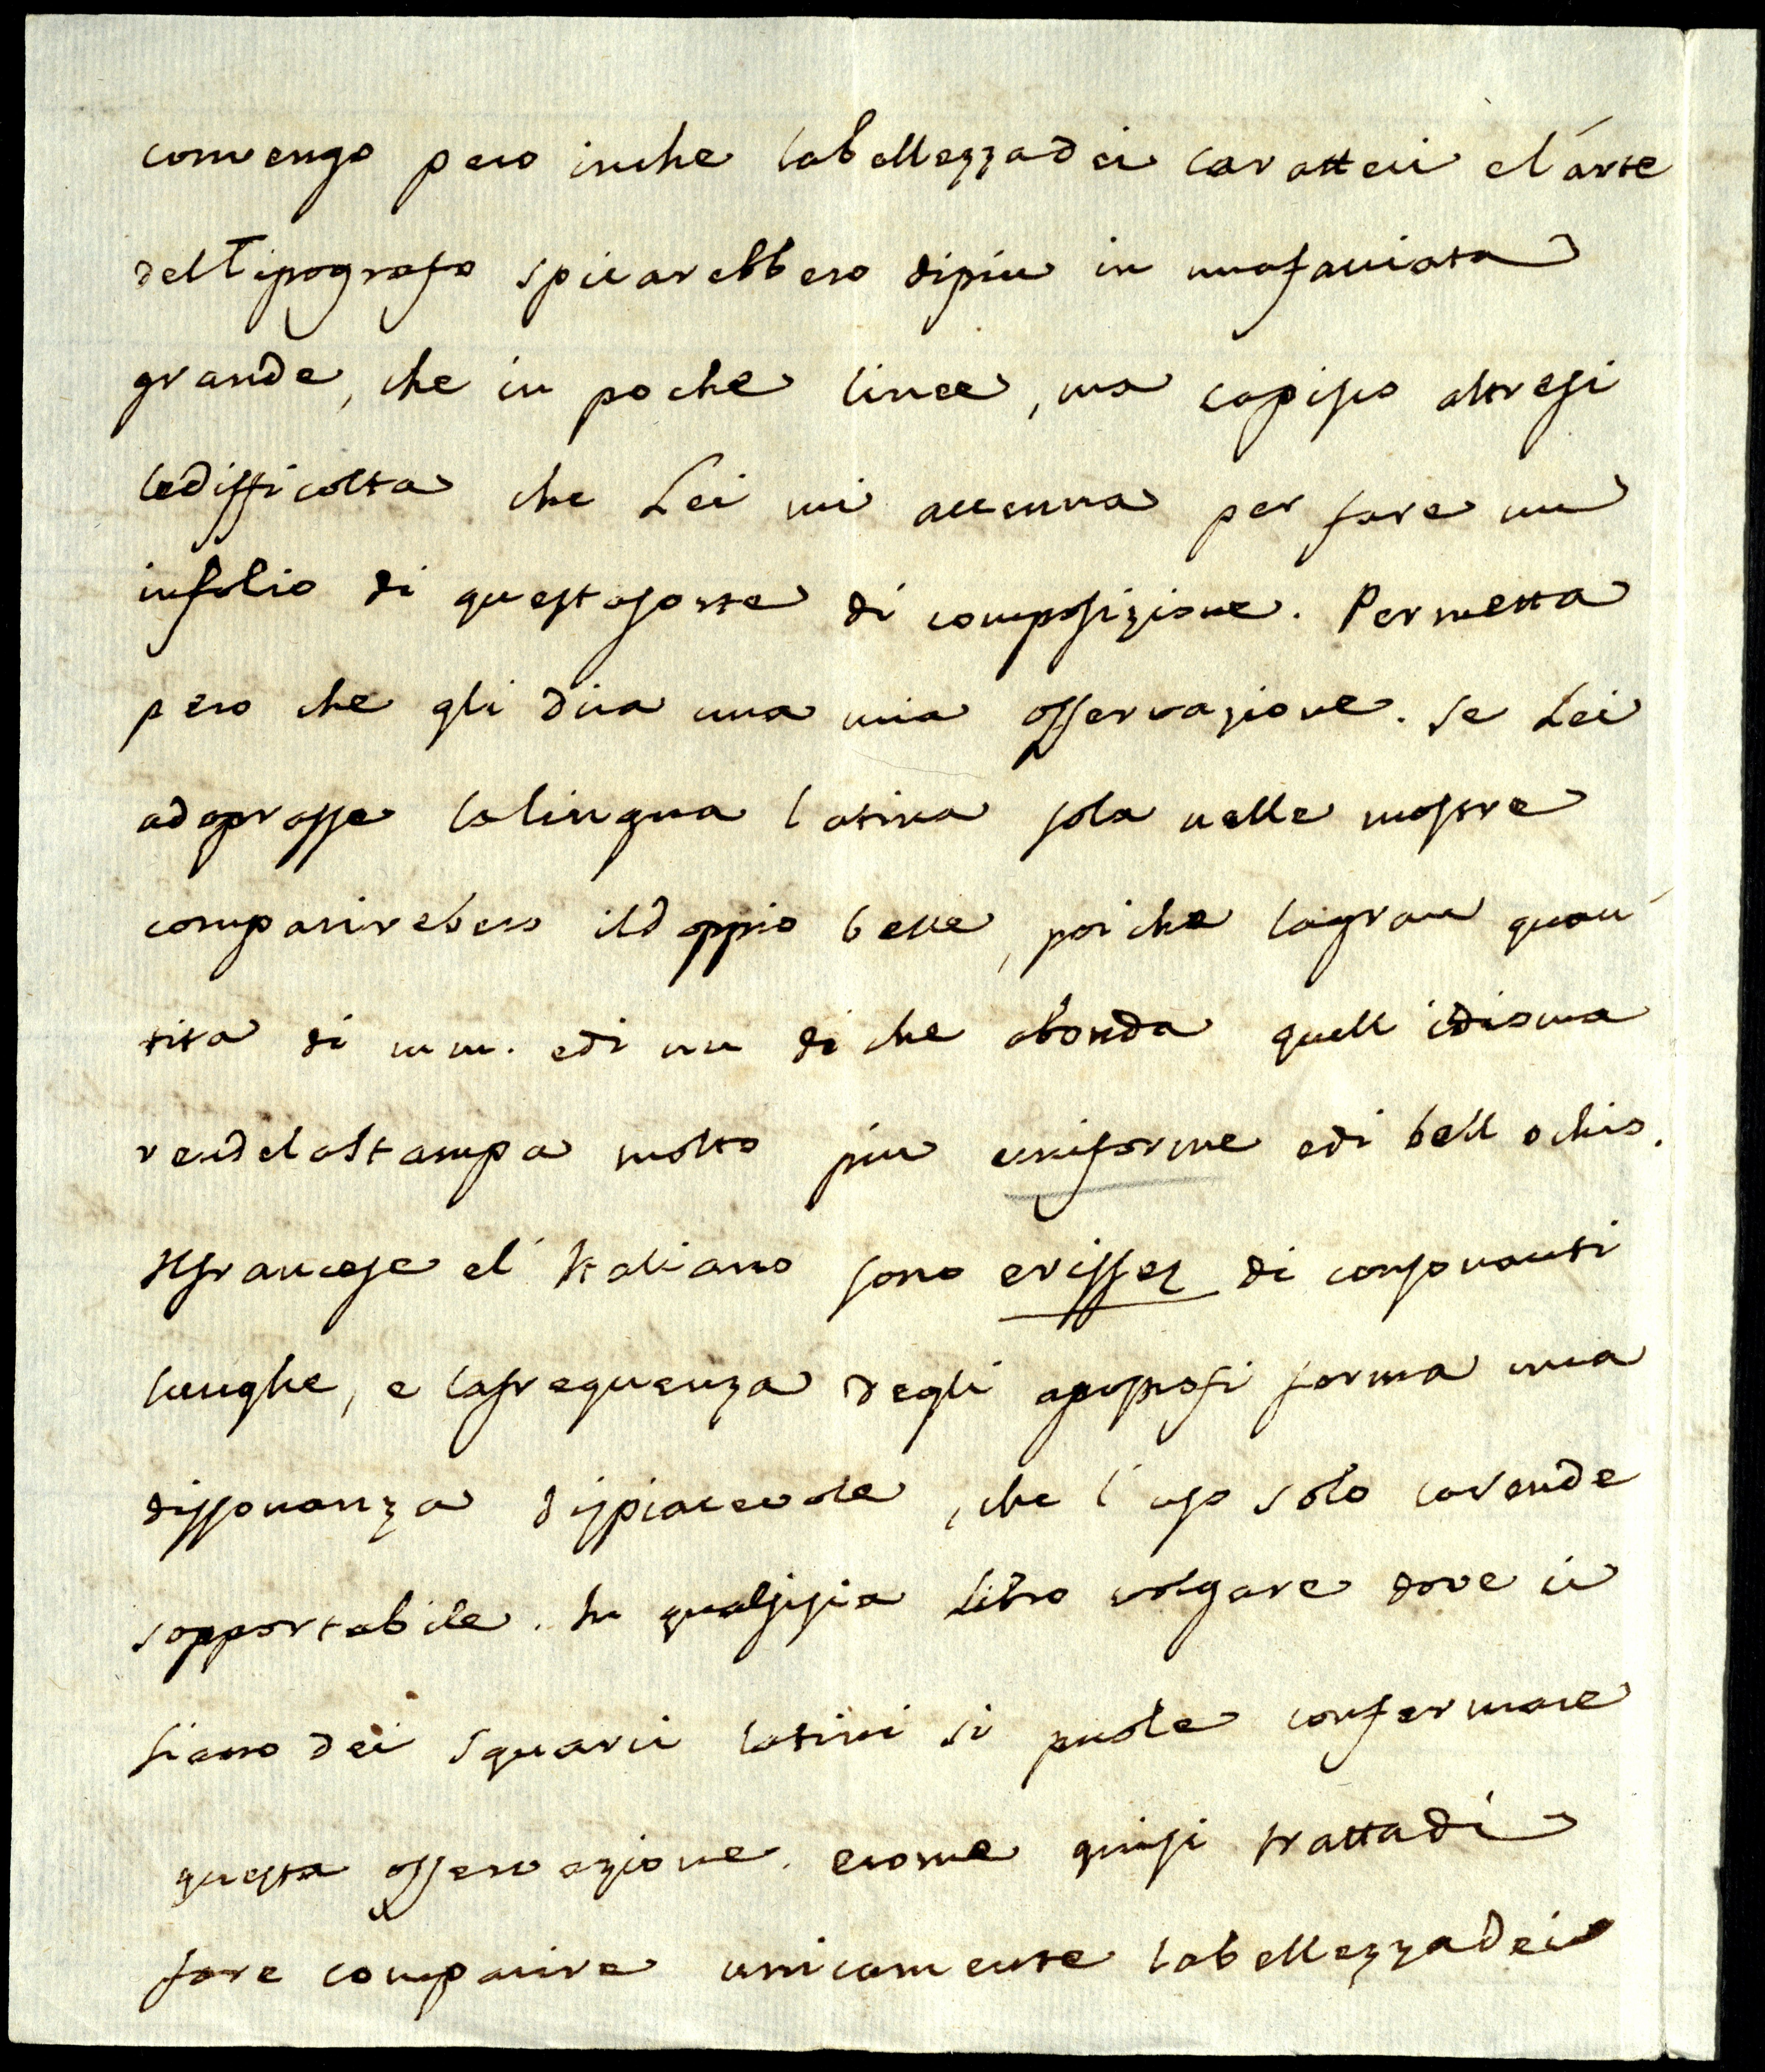 convengo pero inche labellezzadei caratteri el'arte
delTipografo spicarebbero dipiu in unafaciata
grande, che in poche linee, ma capisco altresi
ledifficolta che Lei mi accenna per fare un
infolio di questasorte di composizione. Permetta
pero che gli dica una mia osservazione. Se Lei
adoprasse lalingua latina sola nelle mostre
comparirebero ildoppio belle, poiche lagran quan
tita di mm. edi nn di che abonda quell idioma
rendelastampa molto piu uniforme edi bell ochio.
Ilfrancese el' Italiano sono erissez di consonanti
lunghe, e lafrequenza degli apostrofi forma una
dissonanza dispiacevole, che l'uso solo larende
sopportabile. In qualsisia Libro volgare dove ci
siano dei squarci latini si puole confermare
questa osservazione. ecome quisi trattadi
fare comparire unicamente labellezzadei